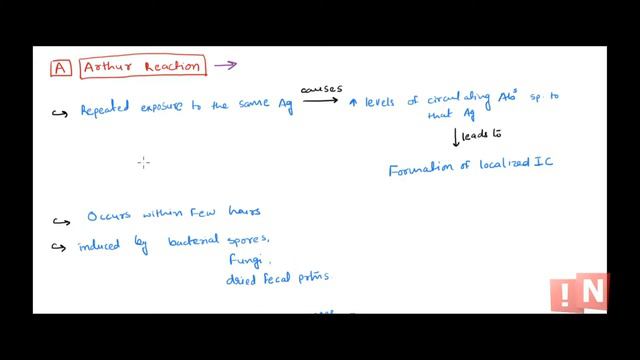 A Arthur Reaction →
↪ Repeated exposure to the same Ag causes → ↑ levels of circulating Abs sp. to
that Ag
↓ leads to
Formation of localized IC
↪ Occurs within Few hours
↪ induced by bacterial spores,
Fungi,
dried fecal protns
!N